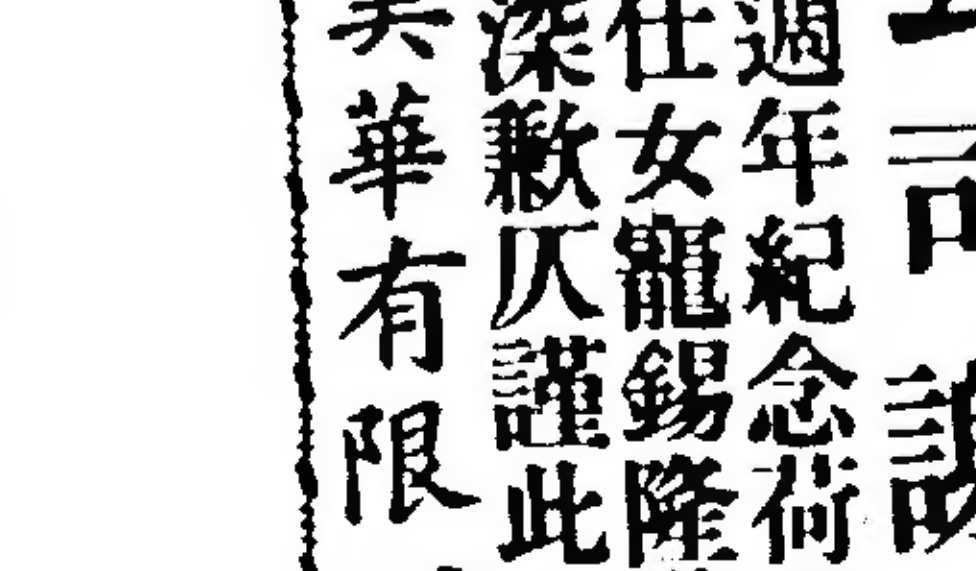 週年紀念荷
仕女寵錫隆
深歉仄謹此
華有限